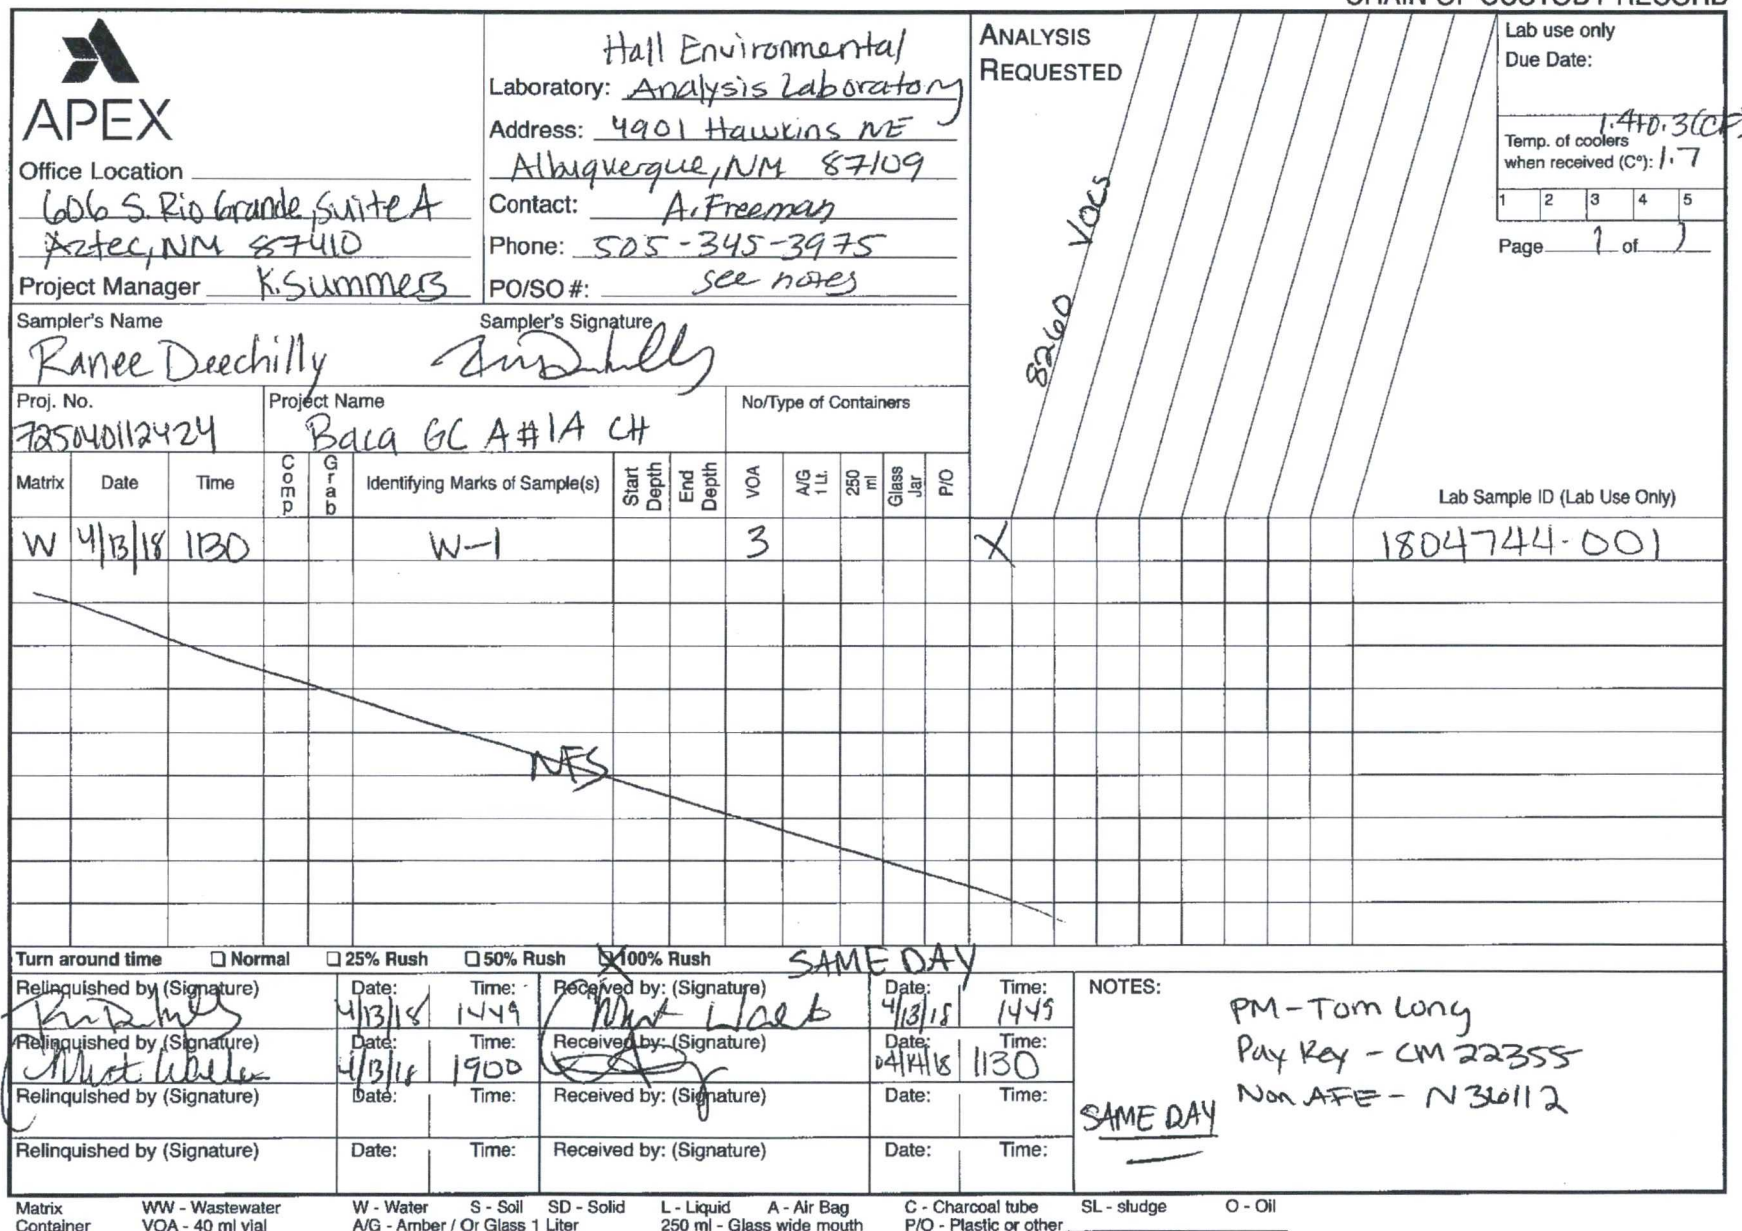 CHAIN OF CUSTODY RECORD
APEX
Office Location
606 S. Rio Grande, Suite A
Aztec, NM 87410
Project Manager K. Summers
Hall Environmental
Laboratory: Analysis Laboratory
Address: 4901 Hawkins NE
Albuquerque, NM 87109
Contact: A. Freeman
Phone: 505-345-3975
PO/SO #: see notes
ANALYSIS
REQUESTED
8260 VOCs
Lab use only
Due Date:
1.4+0.3(CF)
Temp. of coolers
when received (C°): 1.7
1 2 3 4 5
Page 1 of 1
Sampler's Name
Ranee Deechilly
Sampler's Signature
Proj. No.
725040112424
Project Name
Baca GC A#1A CH
No/Type of Containers
Matrix Date Time Comp Grab Identifying Marks of Sample(s) Start Depth End Depth VOA A/G 1 Lt. 250 ml Glass Jar P/O Lab Sample ID (Lab Use Only)
W 4/13/18 1130 W-1 3 X 1804744-001
NFS
Turn around time Normal 25% Rush 50% Rush 100% Rush SAME DAY
Relinquished by (Signature) Date: Time: Received by: (Signature) Date: Time:
4/13/18 1449 4/13/18 1449
Relinquished by (Signature) Date: Time: Received by: (Signature) Date: Time:
4/13/18 1900 04/14/18 1130
Relinquished by (Signature) Date: Time: Received by: (Signature) Date: Time:
Relinquished by (Signature) Date: Time: Received by: (Signature) Date: Time:
NOTES:
PM - Tom Long
Pay Key - CM 22355
Non AFE - N36112
SAME DAY
Matrix WW - Wastewater W - Water S - Soil SD - Solid L - Liquid A - Air Bag C - Charcoal tube SL - sludge O - Oil
Container VOA - 40 ml vial A/G - Amber / Or Glass 1 Liter 250 ml - Glass wide mouth P/O - Plastic or other